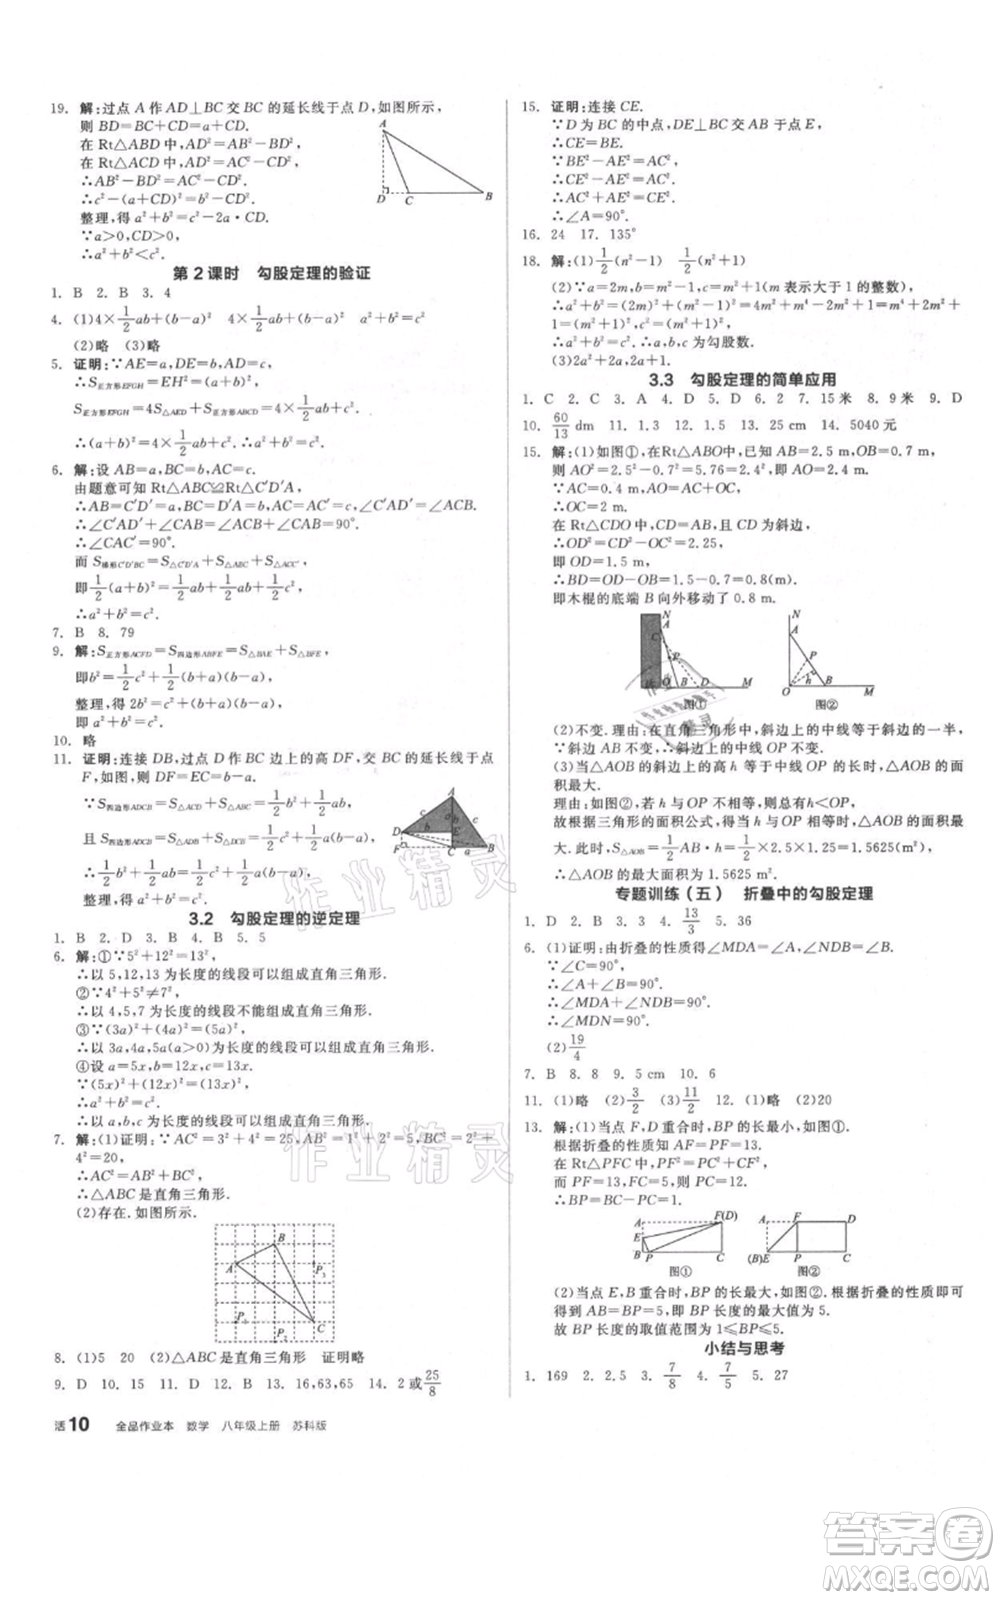 19. 解:过点 A 作 AD⊥BC 交 BC 的延长线于点 D,如图所示,
则 BD=BC+CD=a+CD.
在 Rt△ABD 中,AD²=AB²-BD²,
在 Rt△ACD 中,AD²=AC²-CD²,
∴AB²-BD²=AC²-CD²,
∴c²-(a+CD)²=b²-CD²,
整理,得 a²+b²=c²-2a·CD.
∵a>0,CD>0,
∴a²+b²<c².
A
D C B
第 2 课时 勾股定理的验证
1. B 2. B 3. 4
4. (1)4×1/2ab+(b-a)² 4×1/2ab+(b-a)² a²+b²=c²
(2)略 (3)略
5. 证明:∵AE=a,DE=b,AD=c,
∴S正方形EFGH=EH²=(a+b)²,
S正方形EFGH=4S△AED+S正方形ABCD=4×1/2ab+c²,
∴(a+b)²=4×1/2ab+c²,∴a²+b²=c².
6. 解:设 AB=a,BC=b,AC=c.
由题意可知 Rt△ABC≌Rt△C′D′A,
∴AB=C′D′=a,BC=D′A=b,∠C′AD′=∠ACB.
∴∠C′AD′+∠CAB=∠ACB+∠CAB=90°.
∴∠CAC′=90°.
而 S梯形C′D′BC=S△C′D′A+S△ABC+S△CAC′,
即1/2(a+b)²=1/2ab+1/2ab+1/2c²,
∴a²+b²=c².
7. B 8. 79
9. 解:S正方形ACFD=S四边形ABFE=S△BAE+S△BFE,
即b²=1/2c²+1/2(b+a)(b-a),
整理,得b²=1/2c²+1/2(b+a)(b-a),
即 a²+b²=c².
10. 略
11. 证明:连接 DB,过点 D 作 BC 边上的高 DF,交 BC 的延长线于点
F,如图,则 DF=EC=b-a.
∵S四边形ADCB=S△ACD+S△ABC=1/2b²+1/2ab,
且 S四边形ADCB=S△ADB+S△DCB=1/2c²+1/2a(b-a),
∴1/2b²+1/2ab=1/2c²+1/2a(b-a),
∴a²+b²=c².
A
D b E
F C a B
3.2 勾股定理的逆定理
1. B 2. D 3. D 4. B 5. 5
6. 解:①∵5²+12²=13²,
∴以 5,12,13 为长度的线段可以组成直角三角形.
②∵4²+5²≠7²,
∴以 4,5,7 为长度的线段不能组成直角三角形.
③∵(3a)²+(4a)²=(5a)²,
∴以 3a,4a,5a(a>0)为长度的线段可以组成直角三角形.
④设 a=5x,b=12x,c=13x.
∵(5x)²+(12x)²=(13x)²,
∴a²+b²=c²,
∴以 a,b,c 为长度的线段可以组成直角三角形.
7. 解:(1)证明:∵AC²=3²+4²=25,AB²=1²+2²=5,BC²=2²+
4²=20,
∴AC²=AB²+BC²,
∴△ABC 是直角三角形.
(2)存在.如图所示.
B
A P₃
P₁ C
P₂
8. (1)5 20 (2)△ABC 是直角三角形 证明略
9. D 10. 15 11. 17 12. B 13. 16,63,65 14. 2或25/8
15. 证明:连接 CE.
∵D 为 BC 的中点,DE⊥BC 交 AB 于点 E,
∴CE=BE.
∵BE²-AE²=AC²,
∴CE²-AE²=AC²,
∴AE²+AC²=CE²,
∴∠A=90°.
16. 24 17. 135°
18. 解:(1)1/2(n²-1) 1/2(n²+1)
(2)∵a=2m,b=m²-1,c=m²+1(m 表示大于 1 的整数),
∴a²+b²=(2m)²+(m²-1)²=4m²+m⁴-2m²+1=m⁴+2m²+
1=(m²+1)²=c²,
∴a²+b²=c²,∴a,b,c 为勾股数.
(3)2a²+2a,2a²+2a+1.
3.3 勾股定理的简单应用
1. C 2. C 3. A 4. D 5. D 6. 2 7. 15米 8. 9米 9. D
10. 60/13 dm 11. 1.3 12. 1.5 13. 25 cm 14. 5040 元
15. 解:(1)如图①,在 Rt△ABO 中,已知 AB=2.5 m,OB=0.7 m,
则 AO²=2.5²-0.7²=5.76=2.4²,即 AO=2.4 m.
∵AC=0.4 m,
∴OC=2 m.
在 Rt△CDO 中,AB=CD,且 CD 为斜边,
∴OD²=CD²-OC²=2.25,
即 OD=1.5 m,
∴BD=OD-OB=1.5-0.7=0.8(m).
即木棍的底端 B 向外移动了 0.8 m.
N
A
C
P
O B D M
图①
N
A
P
h
O B M
图②
(2)不变.理由:在直角三角形中,斜边上的中线等于斜边的一半,
∵斜边 AB 不变,∴斜边上的中线 OP 不变.
(3)当△AOB 的斜边上的高 h 等于中线 OP 的长时,△AOB 的面
积最大.
理由:如图②,若 h 与 OP 不相等,则总有h<OP.
故根据三角形的面积公式,得当 h 与 OP 相等时,△AOB 的面积
最大.此时,S△AOB=1/2AB·h=1/2×2.5×1.25=1.5625(m²),
∴△AOB 的最大面积为 1.5625 m².
专题训练(五) 折叠中的勾股定理
1. D 2. B 3. B 4. 13/3 5. 36
6. (1)证明:由折叠的性质得∠MDA=∠A,∠NDB=∠B.
∵∠C=90°,
∴∠A+∠B=90°,
∴∠MDA+∠NDB=90°,
∴∠MDN=90°.
(2)19/4
7. B 8. 8 9. 5 cm 10. 6
11. (1)略 (2)3/2 (3)11/2 12. (1)略 (2)20
13. 解:(1)当点 F,D 重合时,BP 的长最小,如图①.
根据折叠的性质知 AF=PF=13.
在 Rt△PFC 中,PF=13,FC=5,
而 PC²=PF²-FC²,则 PC=12.
∴BP=BC-PC=1.
A F(D)
E
B P C
图①
A F D
(B)E P C
图②
(2)当点 E,B 重合时,BP 的长最大,如图②.由折叠的性质即可
得到 AB=BP=5,即 BP 长度的最大值为 5.
故 BP 长度的取值范围为 1≤BP≤5.
小结与思考
1. 169 2. 2.5 3. 7/8 4. 7/5 5. B 6. B 7. D
活10 全品作业本 数学 八年级上册 苏科版
作业精灵
作业精灵
答案圈
MXQE.COM